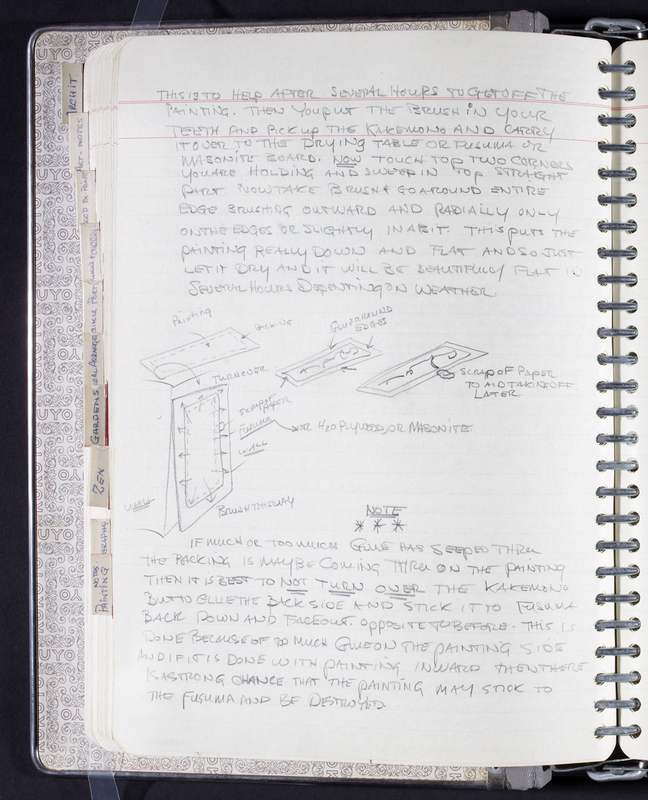 THIS IS TO HELP AFTER SEVERAL HOURS TO GET OFF THE
PAINTING. THEN YOU PUT THE BRUSH IN YOUR
TEETH AND PICK UP THE KAKEMONO AND CARRY
IT OVER TO THE DRYING TABLE OR FUSUMA OR
MASONITE BOARD. NOW TOUCH TOP TWO CORNERS
YOU ARE HOLDING AND SWEEP IN TOP STRAIGHT
PART NOW TAKE BRUSH & GO AROUND ENTIRE
EDGE BRUSHING OUTWARD AND RADIALLY ONLY
ON THE EDGES OR SLIGHTLY IN A BIT. THIS PUTS THE
PAINTING REALLY DOWN AND FLAT AND SO JUST
LET IT DRY AND IT WILL BE BEAUTIFULLY FLAT IN
SEVERAL HOURS DEPENTING ON WEATHER.
Painting
BACKING
GLUE AROUND
EDGES
TURN OVER
SCRAP OF PAPER
TO AID TAKING OFF
LATER
SCRAP OF
PAPER
FUSUMA
OR H2O PLYWOOD, OR MASONITE
WALL
WALL
BRUSH THIS WAY
NOTE
* * *
IF MUCH OR TOO MUCH GLUE HAS SEEPED THRU
THE BACKING IS MAYBE COMING THRU ON THE PAINTING
THEN IT IS BEST TO NOT TURN OVER THE KAKEMONO
BUT TO GLUE THE BACK SIDE AND STICK IT TO FUSUMA
BACK DOWN AND FACE OUT OPPOSITE TO BEFORE. THIS IS
DONE BECAUSE OF SO MUCH GLUE ON THE PAINTING SIDE
AND IF IT IS DONE WITH PAINTING INWARD THEN THERE
IS A STRONG CHANCE THAT THE PAINTING MAY STICK TO
THE FUSUMA AND BE DESTROYED
ARCHIT
NOTES
GARDENS
ZEN
PAINTING
NOTES